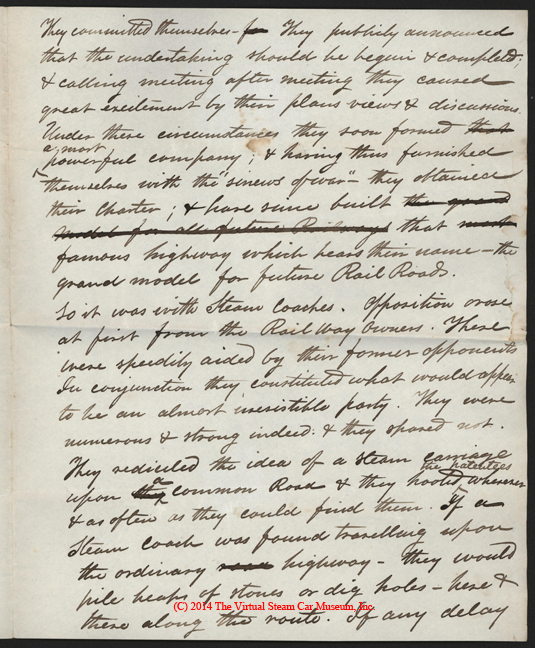 They committed themselves - for They publicly announced
that the undertaking should be begun & completed;
& calling meeting after meeting they caused
great excitement by their plans views & discussions.
Under these circumstances they soon formed that
a most
powerful company; & having thus furnished
themselves with the "sinews of war" - they obtained
their Charter; & have since built the grand
model for all future Railways that most
famous highway which bears their name - the
grand model for future Rail Roads.
So it was with Steam Coaches. Opposition arose
at first from the Rail Way Owners. These
were speedily aided by their former opponents
In conjunction they constituted what would appear
to be an almost irresistible party. They were
numerous & strong indeed: & they spared not.
They rediculed the idea of a steam carriage
the patentees
upon a common Road & they hooted wherever
& as often as they could find them. If a
Steam Coach was found travelling upon
the ordinary highway - they would
pile heaps of stones or dig holes - here &
there along the route. If any delay
(C) 2014 The Virtual Steam Car Museum, Inc.